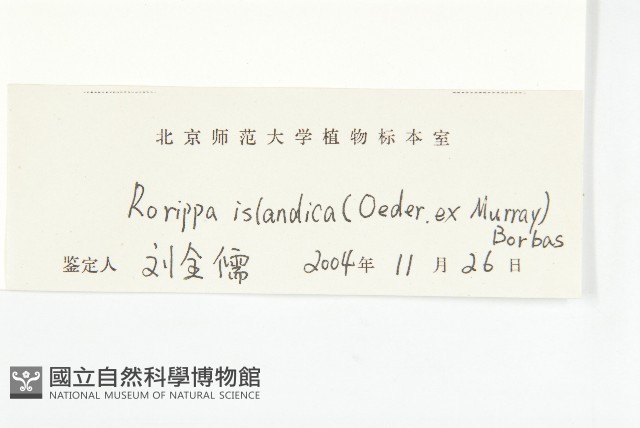 北京师范大学植物标本室
Rorippa islandica (Oeder. ex Murray)
Borbas
鉴定人 刘全儒 2004年 11 月 26 日
國立自然科學博物館
NATIONAL MUSEUM OF NATURAL SCIENCE